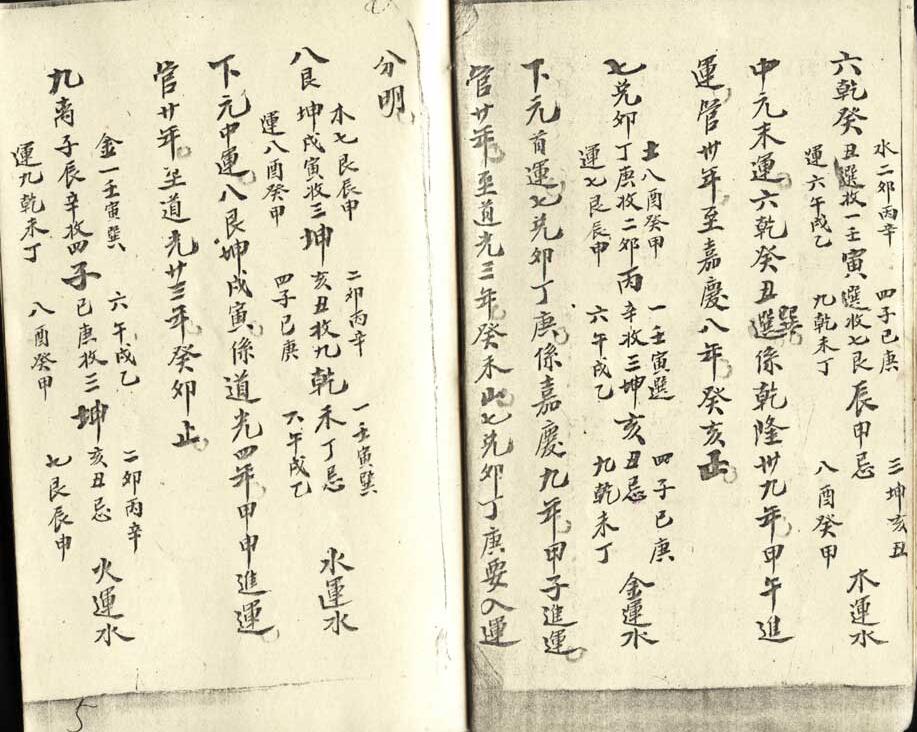 水二卯丙辛 四子己庚 三坤亥丑
六乾癸丑選收一壬寅選收七艮辰甲忌 木運水
運六午戌乙 九乾未丁 八酉癸甲
中元末運六乾癸丑選巽係乾隆卅九年甲午進
運管廿年至嘉慶八年癸亥止
土八酉癸甲 一壬寅選 四子己庚
七兌卯丁庚收二卯丙辛收三坤亥丑忌 金運水
運七艮辰甲 六午戌乙 九乾未丁
下元首運七兌卯丁庚係嘉慶九年甲子進運
管廿年至道光三年癸未止七兌卯丁庚要入運
分明
木七艮辰甲 二卯丙辛 一壬寅巽
八艮坤戌寅收三坤亥丑收九乾未丁忌 水運水
運八酉癸甲 四子己庚 六午戌乙
下元中運八艮坤戌寅係道光四年甲申進運
管廿年至道光廿三年癸卯止
金一壬寅巽 六午戌乙 二卯丙辛
九离子辰辛收四子己庚收三坤亥丑忌 火運水
運九乾未丁 八酉癸甲 七艮辰申
5